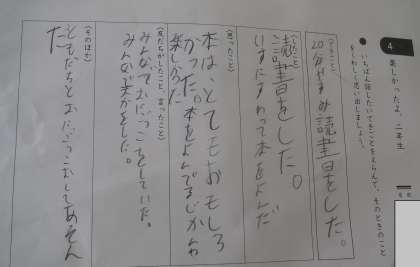 4
楽しかったよ、二年生
●いちばん話したいできごとをえらんで、そのときのことを
くわしく思い出しましょう。
(できごと)
20分休すみ読書をした。
(したこと)
読書をした。
いすにすわって本をよんだ
(思ったこと)
本は、とてもおもしろ
かった。本をよんでるじかんわ
楽しかった
(友だちがしたこと、言ったこと)
みんなでおにごっこをしていた。
みんなで
(そのほか)
ともだちとおにごっこおしてあそん
た